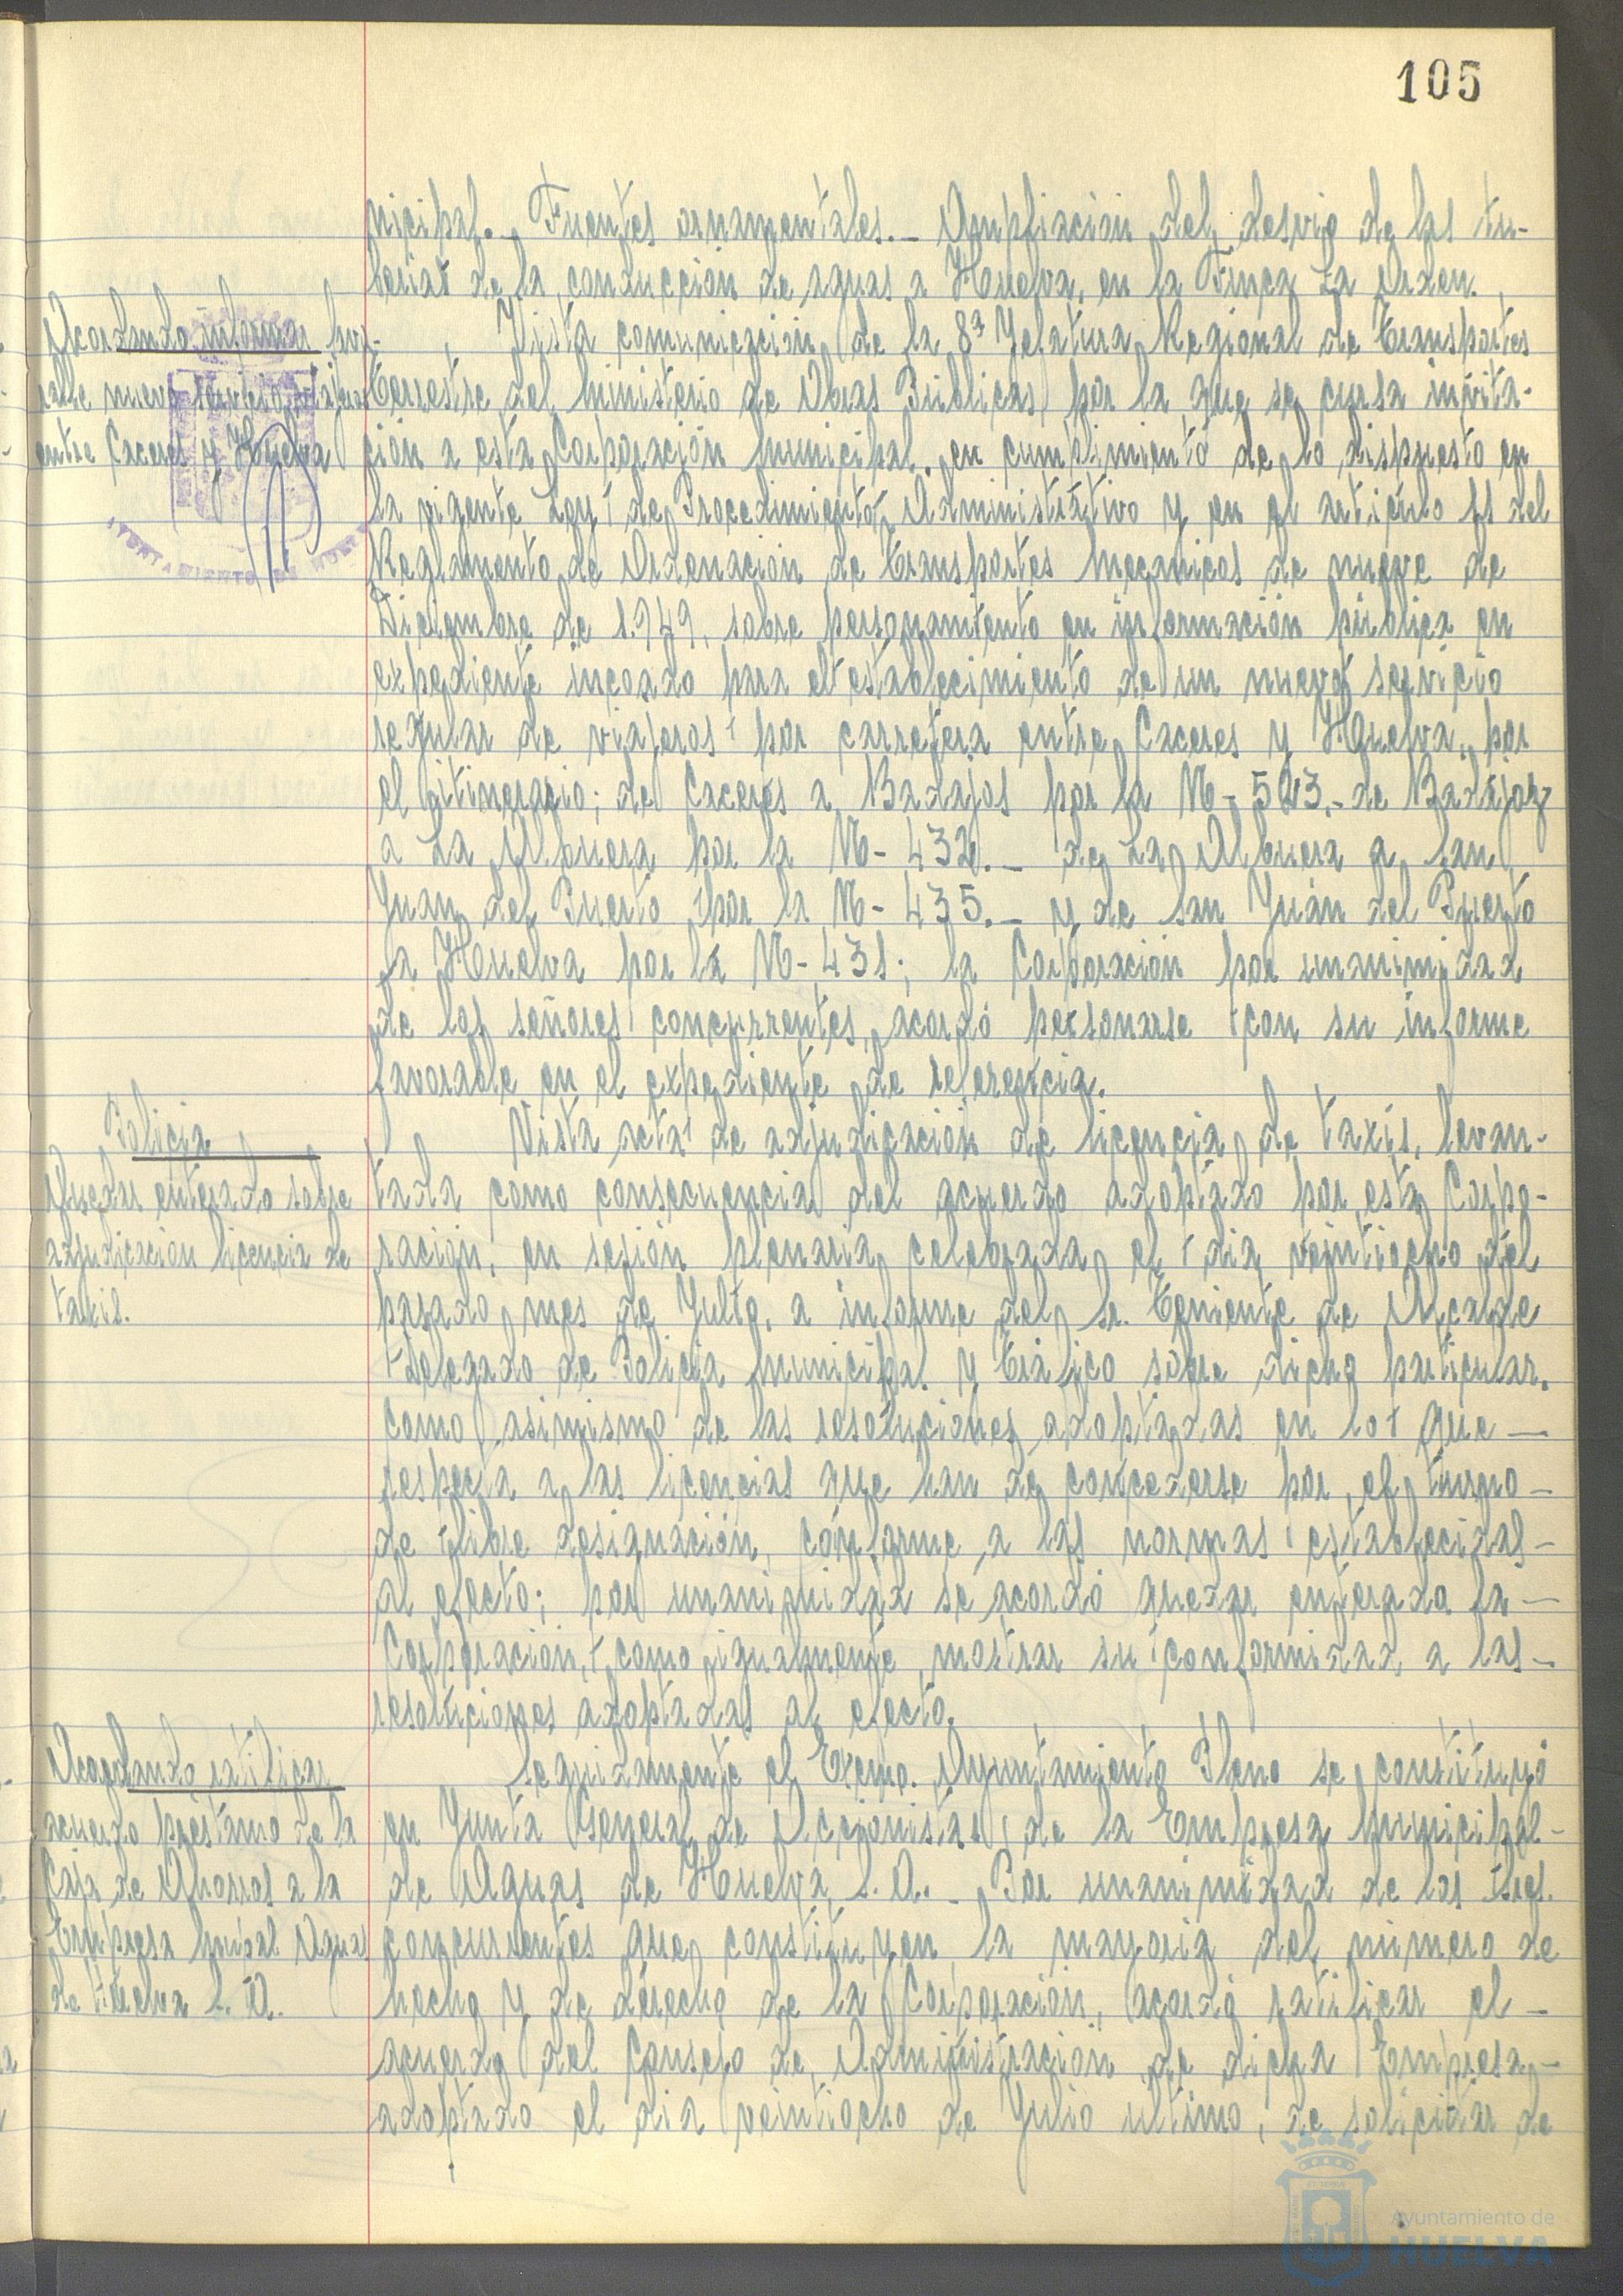 105
nicipal.- Fuentes ornamentales.- Ampliación del desvio de las tu-
berias de la conducción de aguas a Huelva, en la Finca La Orden.
Acordando informar favo-
rable nuevo servicio viajeros
entre Caceres y Huelva
Vista comunicación de la 8ª Jefatura Regional de Transportes
Terrestre del Ministerio de Obras Públicas por la que se cursa invita-
ción a esta Corporación Municipal, en cumplimiento de lo dispuesto en
la vigente Ley de Procedimiento Administrativo y en el artículo 11 del
Reglamento de Ordenación de Transportes Mecanicos de nueve de
Diciembre de 1.949, sobre personamiento en información pública en
expediente incoado para el establecimiento de un nuevo servicio
regular de viajeros por carretera entre Caceres y Huelva, por
el itinerario; de Caceres a Badajos por la N-523.- de Badajoz
a La Albuera por la N-432.- de La Albuera a San
Juan del Puerto por la N-435.- y de San Juan del Puerto
a Huelva por la N-431; la Corporación por unanimidad
de los señores concurrentes, acordó personarse con su informe
favorable en el expediente de referencia.
Policia
Quedar enterado sobre
adjudicación licencia de
taxis.
Vista acta de adjudicación de licencia de taxis, levan-
tada como consecuencia del acuerdo adoptado por esta Corpo-
ración, en sesión plenaria celebrada el dia veintiocho del
pasado mes de Julio, a informe del Sr. Teniente de Alcalde
Delegado de Policia Municipal y Tráfico sobre dicho particular,
como asimismo de las resoluciones adoptadas en lo que -
respecta a las licencias que han de concederse por el turno -
de libre designación, conforme a las normas establecidas -
al efecto; por unanimidad se acordó quedar enterada la -
Corporación, como igualmente mostrar su conformidad a las -
resoluciones adoptadas al efecto.
Acordando ratificar
acuerdo préstamo de la
Caja de Ahorros a la
Empresa Mnipal Aguas
de Huelva S.A.
Seguidamente el Excmo. Ayuntamiento Pleno se constituyó
en Junta General de Accionistas de la Empresa Municipal -
de Aguas de Huelva, S.A.- Por unanimidad de los Sres.
concurrentes que constituyen la mayoria del número de
hecho y de derecho de la Corporación, acordó ratificar el -
acuerdo del Consejo de Administración de dicha Empresa -
adoptado el dia veintiocho de Julio último, de solicitar de
Ayuntamiento de
HUELVA